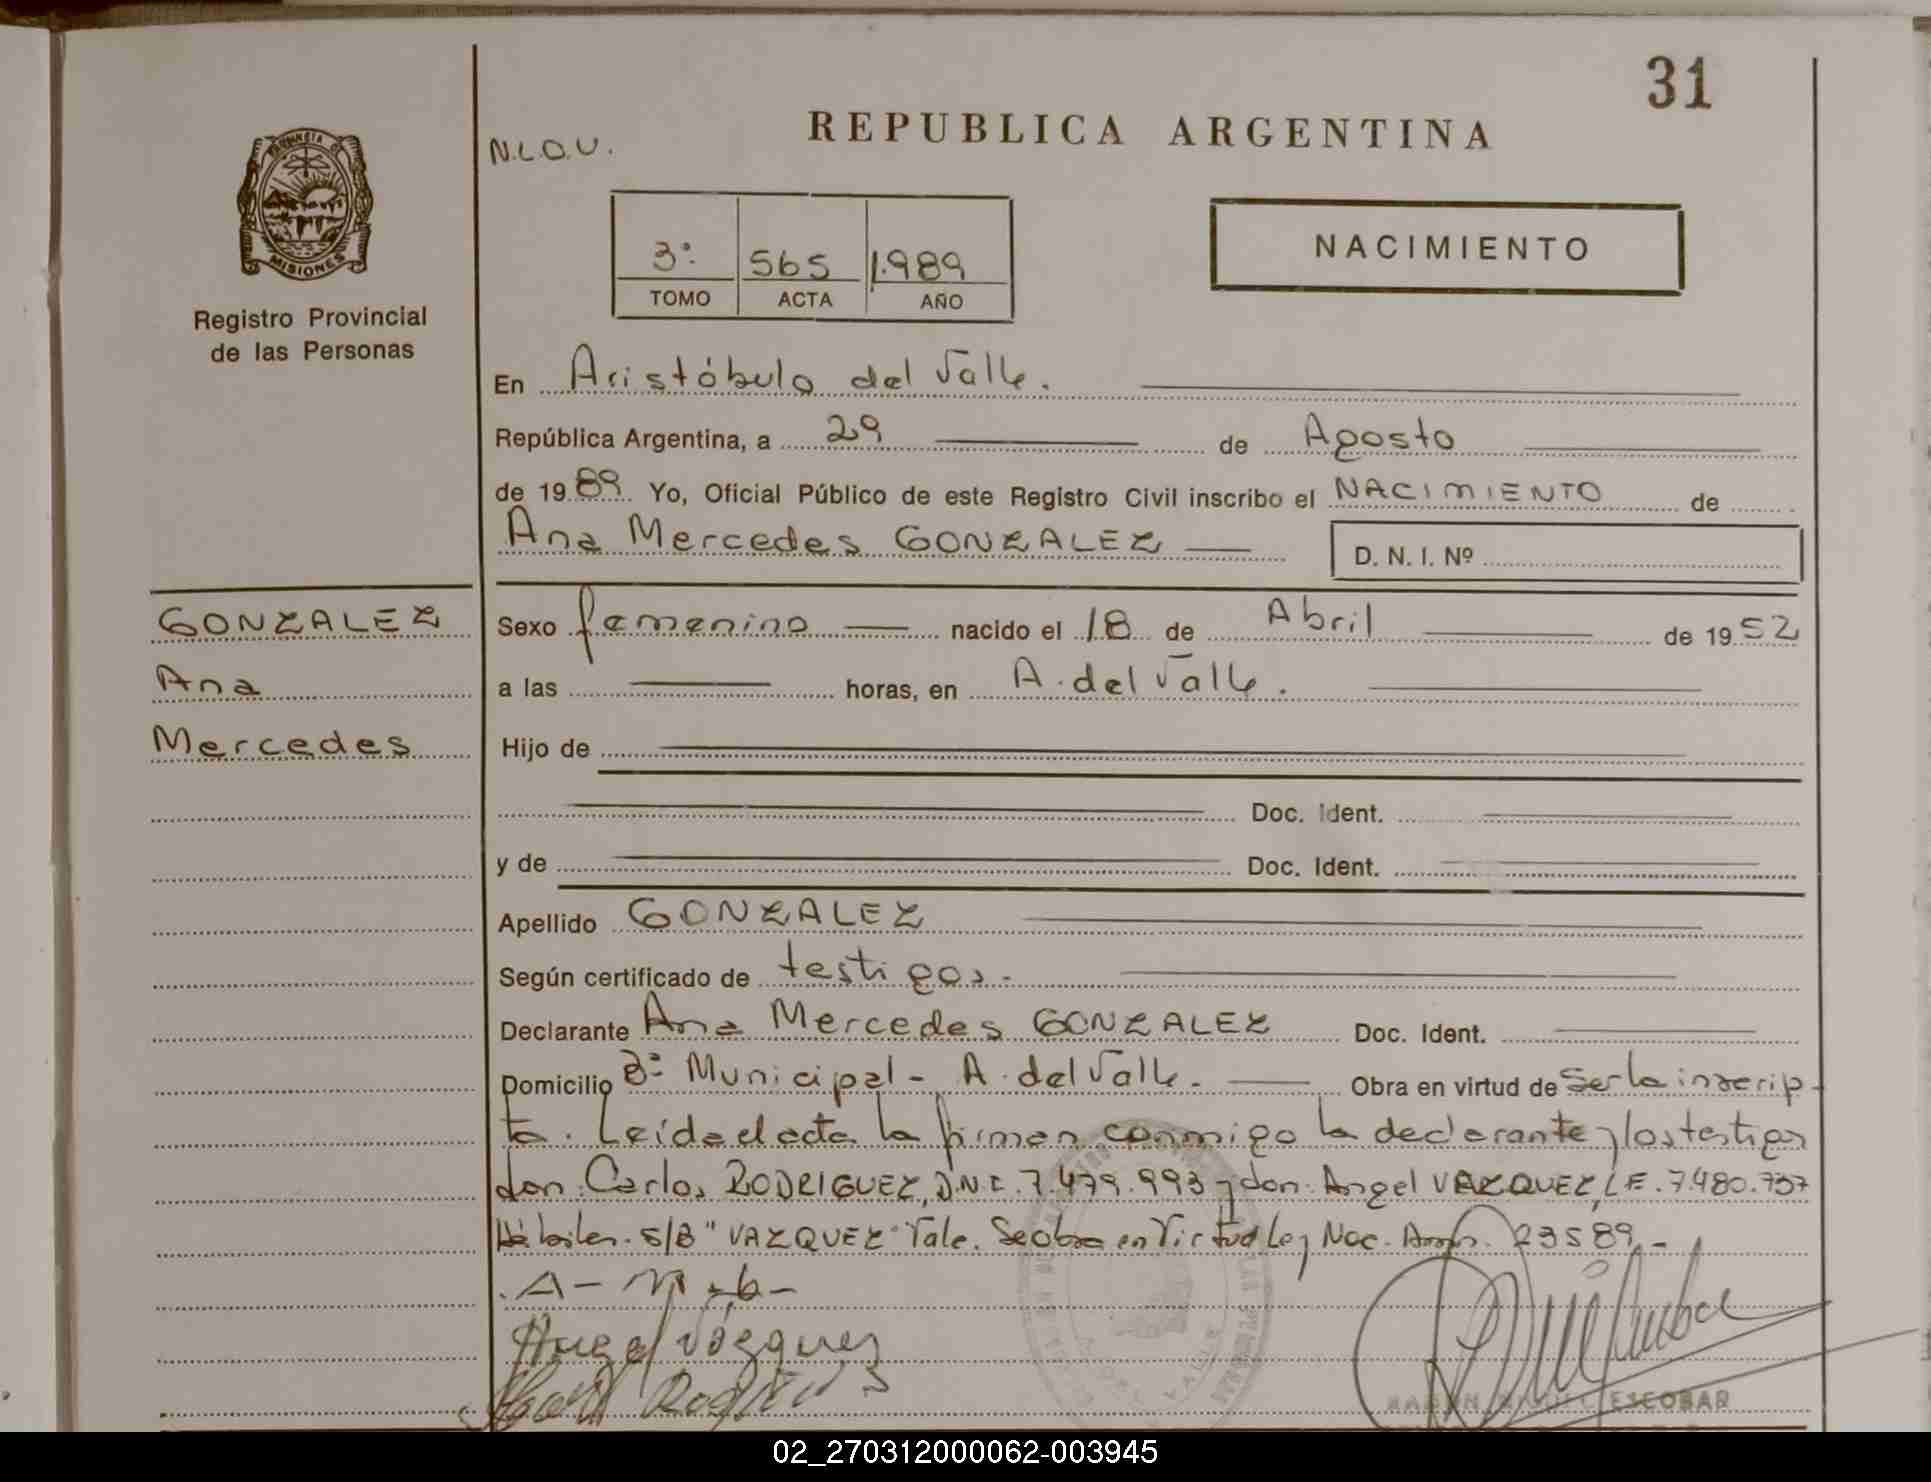 31
REPUBLICA ARGENTINA
N.L.O.U.
PROVINCIA DE
MISIONES
Registro Provincial
de las Personas
3º 565 1.989
TOMO ACTA AÑO
NACIMIENTO
En Aristóbulo del Valle.
República Argentina, a 29 de Agosto
de 19 89 Yo, Oficial Público de este Registro Civil inscribo el NACIMIENTO de
Ana Mercedes GONZALEZ D. N. I. Nº
GONZALEZ
Ana
Mercedes
Sexo femenino nacido el 18 de Abril de 19 52
a las horas, en A. del Valle.
Hijo de
Doc. Ident.
y de Doc. Ident.
Apellido GONZALEZ
Según certificado de testigos.
Declarante Ana Mercedes GONZALEZ Doc. Ident.
Domicilio Bº Municipal - A. del Valle. Obra en virtud de Ser la inscrip-
ta. Leída el acta la firman conmigo la declarante y los testigos
don: Carlos RODRIGUEZ, D.N.I. 7.479.993 y don: Angel VAZQUEZ, L.E. 7.480.737
Hábiles. S/B "VAZQUEZ" Vale. Se obra en Virtud Ley Nac. 23589.-
A - M - G -
Angel Vázquez
ESCOBAR
02_270312000062-003945